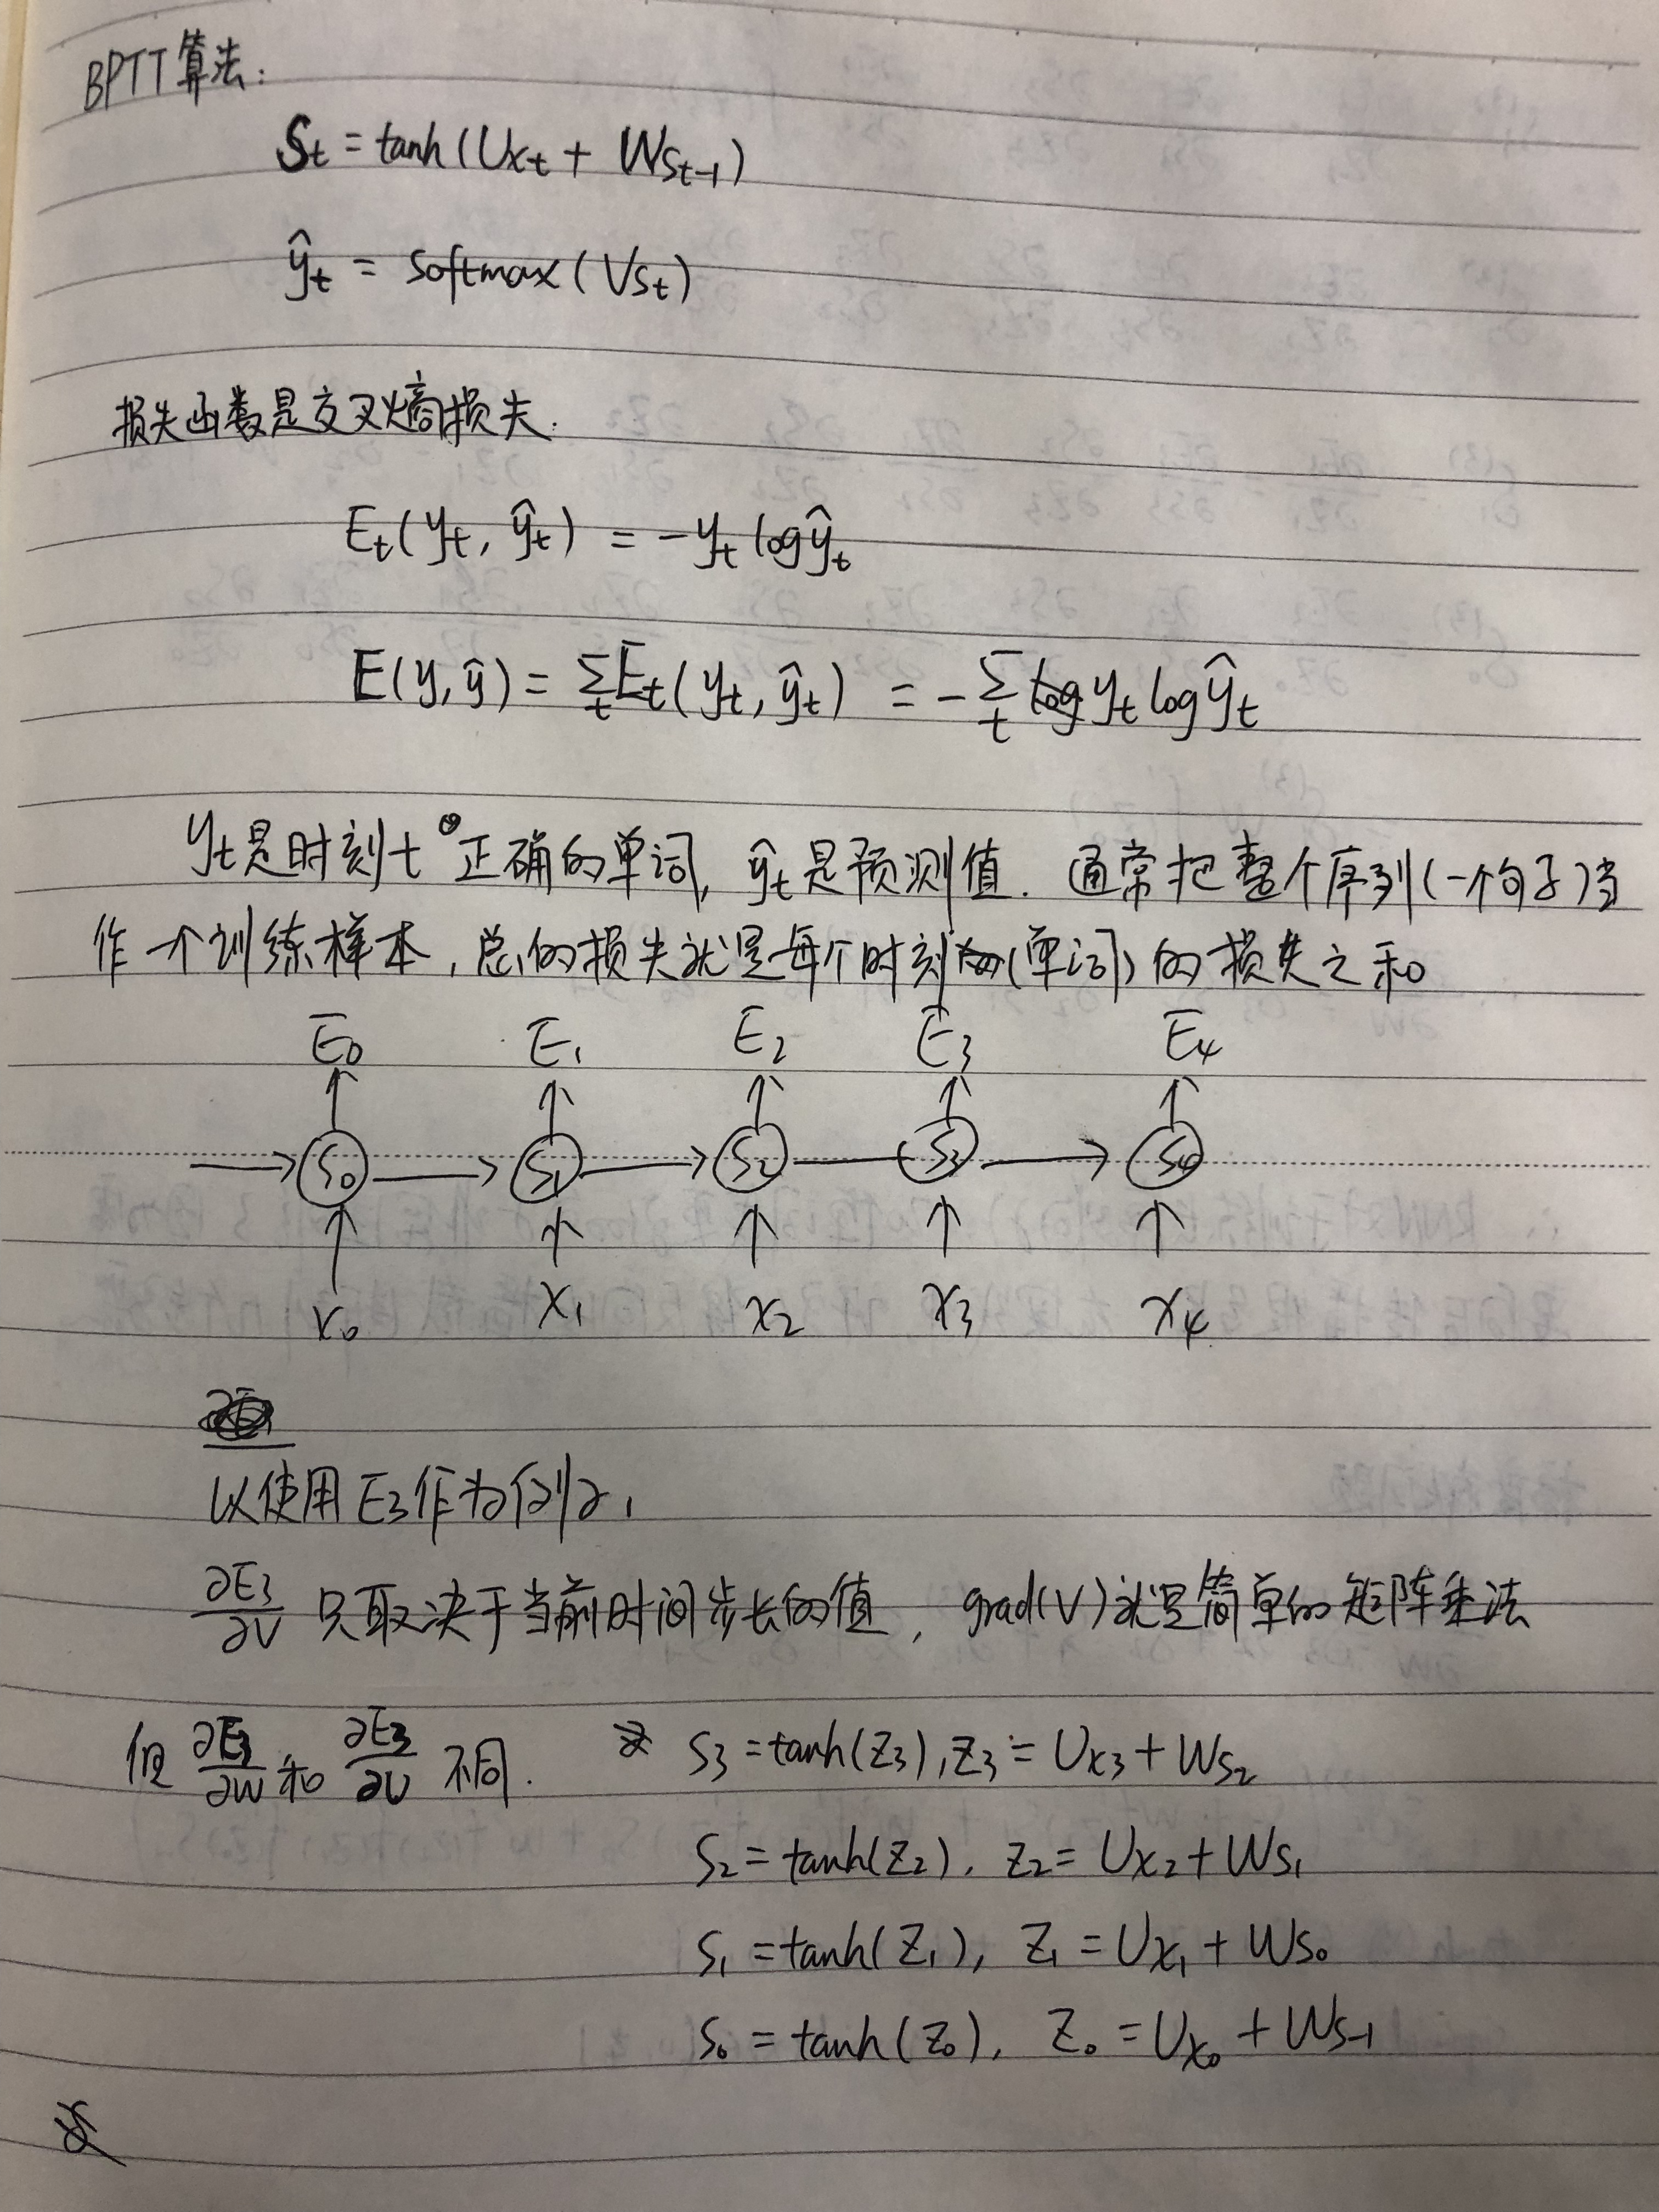 BPTT算法:
St = tanh(Uxt + Wst-1)
ŷt = softmax(Vst)
损失函数是交叉熵损失.
Et(yt, ŷt) = -yt logŷt
E(y, ŷ) = ∑t Et(yt, ŷt) = -∑t yt logŷt
yt是时刻t正确的单词, ŷt是预测值. 通常把整个序列(一个句子)当
作一个训练样本, 总的损失就是每个时刻(单词)的损失之和
E0 E1 E2 E3 E4
S0 S1 S2 S3 S4
x0 x1 x2 x3 x4
以使用E3作为例子,
∂E3/∂V 只取决于当前时间步长的值, grad(V)就是简单的矩阵乘法
但 ∂E3/∂W 和 ∂E3/∂U 不同. S3 = tanh(Z3), Z3 = Ux3 + Ws2
S2 = tanh(Z2), Z2 = Ux2 + Ws1
S1 = tanh(Z1), Z1 = Ux1 + Ws0
S0 = tanh(Z0), Z0 = Ux0 + Ws-1